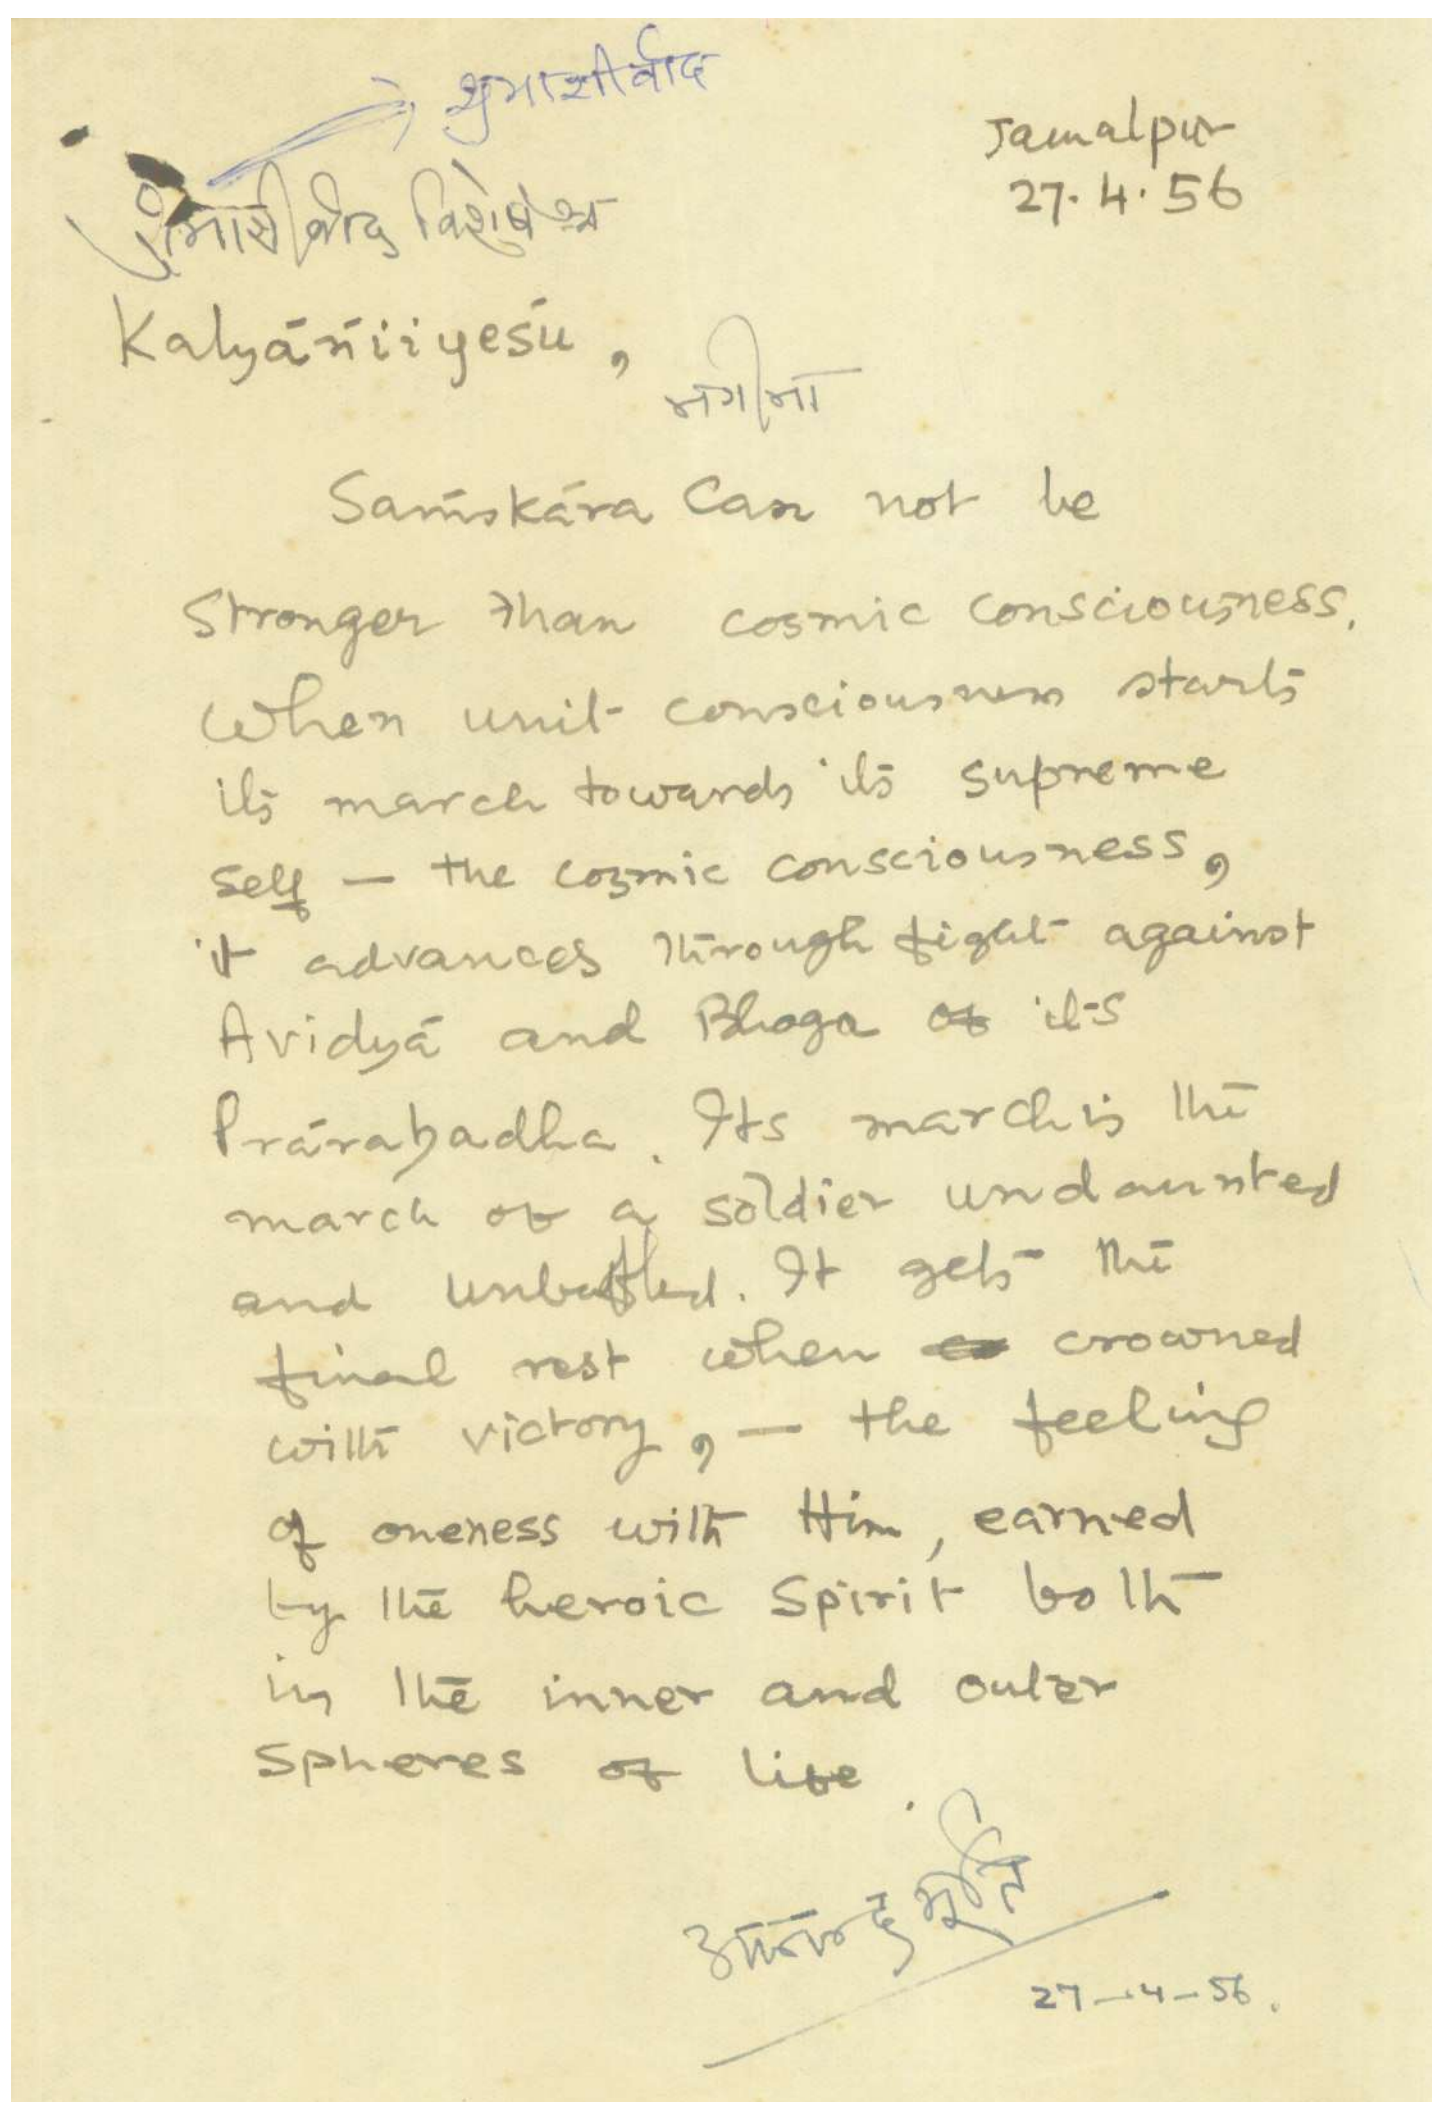 शुभाशीर्वाद
Jamalpur
27.4.56
Kalyáńiiyesu,
Saḿskára Can not be
Stronger than cosmic consciousness.
When unit consciousness starts
its march towards its supreme
self — the cosmic consciousness,
it advances through fight against
Avidyá and Bhoga of its
Prárabadha. Its march is the
march of a soldier undaunted
and unbaffled. It gets the
final rest when crowned
with victory, — the feeling
of oneness with Him, earned
by the heroic Spirit both
in the inner and outer
Spheres of life.
आनन्दमूर्ति
27-4-56.